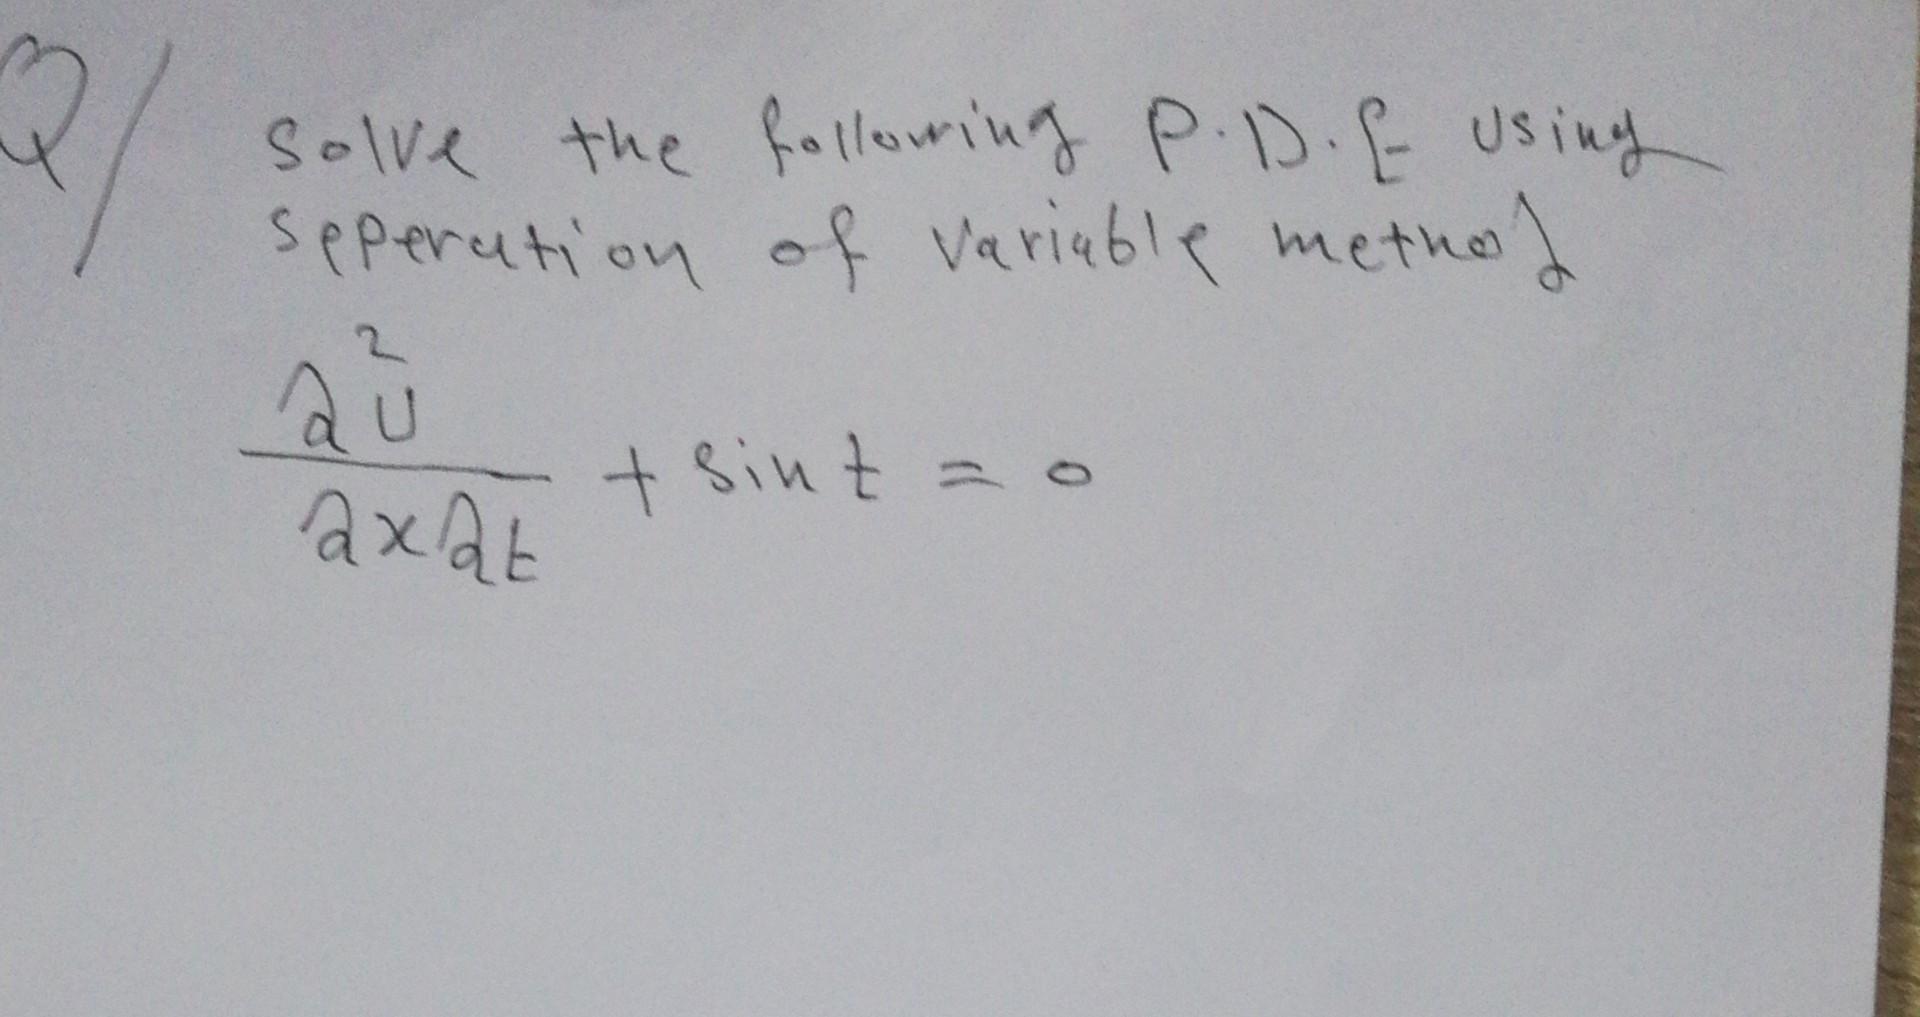 Q/ Solve the following P.D.E using
seperation of variable method
∂²U / ∂x∂t + sin t = 0